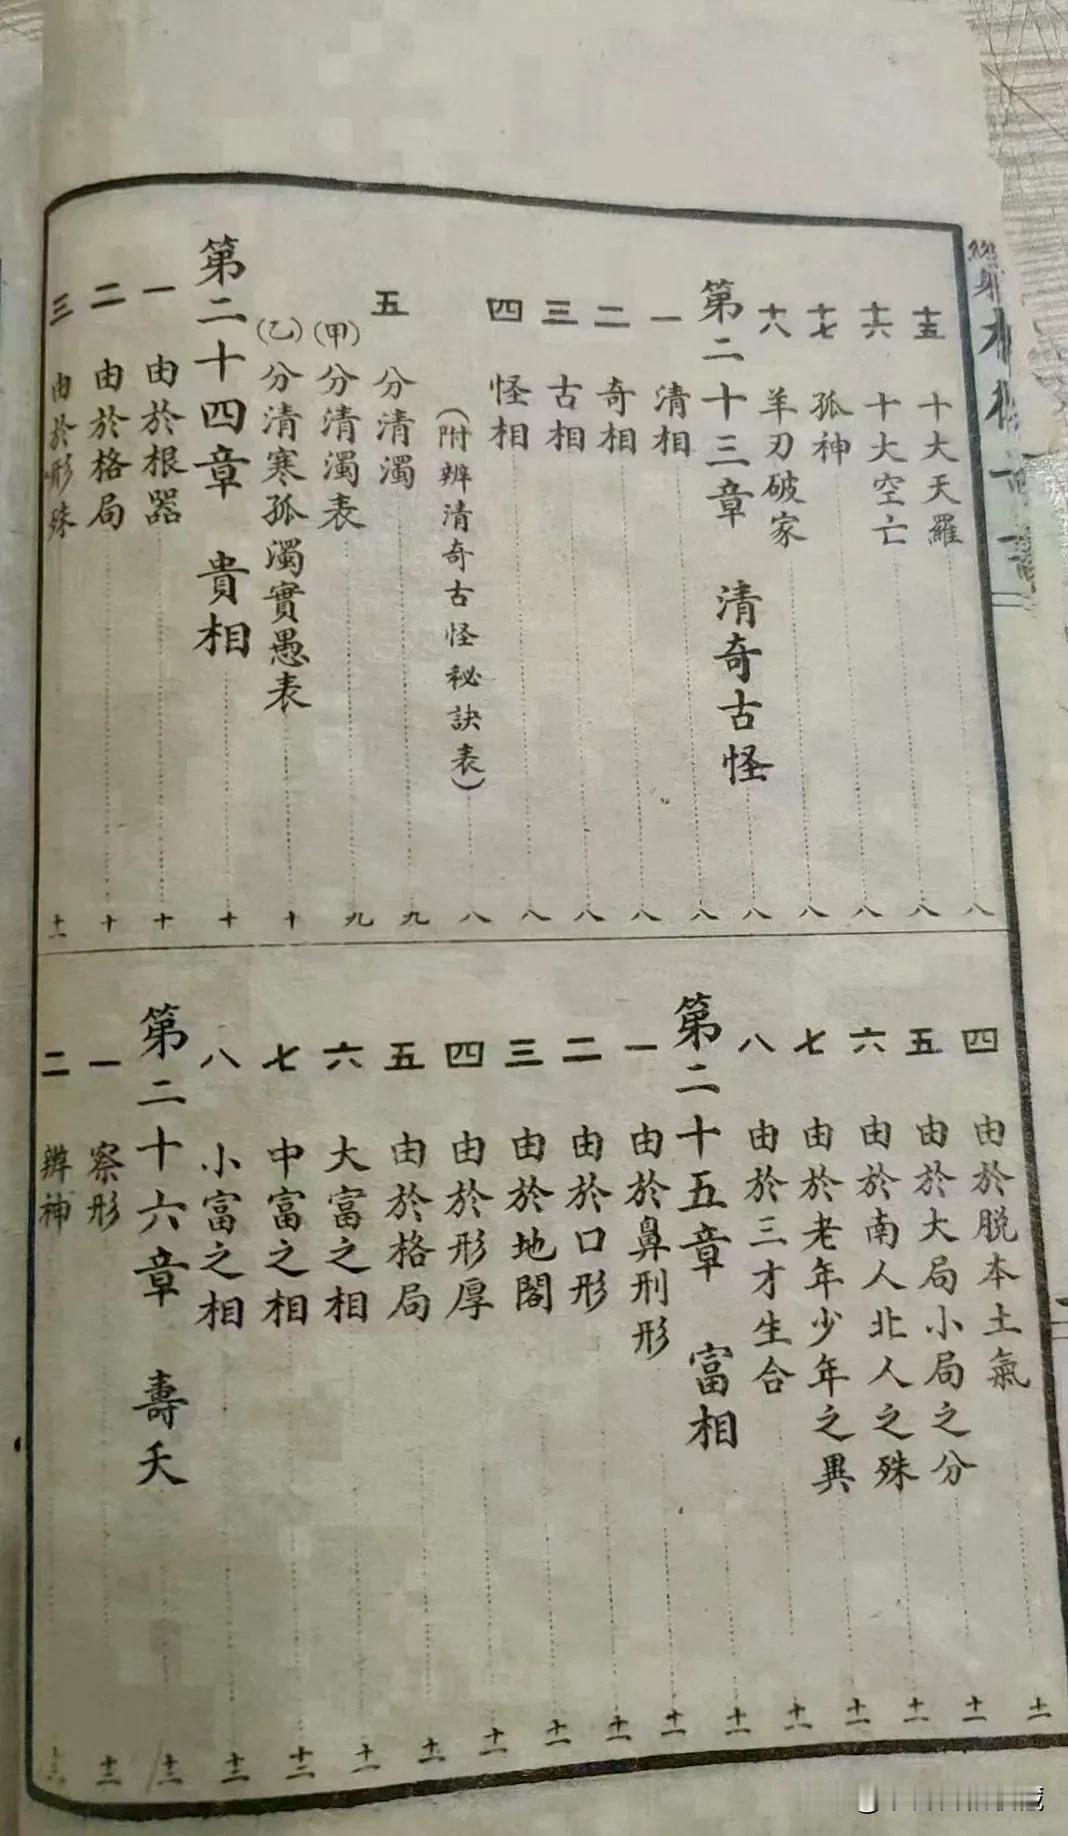 十五 十大天羅 八
十六 十大空亡 八
十七 孤神 八
十八 羊刃破家 八
第二十三章 清奇古怪 八
一 清相 八
二 奇相 八
三 古相 八
四 怪相 八
（附辨清奇古怪秘訣表） 八
五 分清濁 九
（甲）分清濁表 九
（乙）分清寒孤濁實愚表 十
第二十四章 貴相 十
一 由於根器 十
二 由於格局 十
三 由於形殊 十一
四 由於脱本土氣 十一
五 由於大局小局之分 十一
六 由於南人北人之殊 十一
七 由於老年少年之異 十一
八 由於三才生合 十一
第二十五章 富相 十一
一 由於鼻刑形 十一
二 由於口形 十一
三 由於地閣 十一
四 由於形厚 十一
五 由於格局 十一
六 大富之相 十一
七 中富之相 十二
八 小富之相 十二
第二十六章 壽夭 十二
一 察形 十二
二 辨神